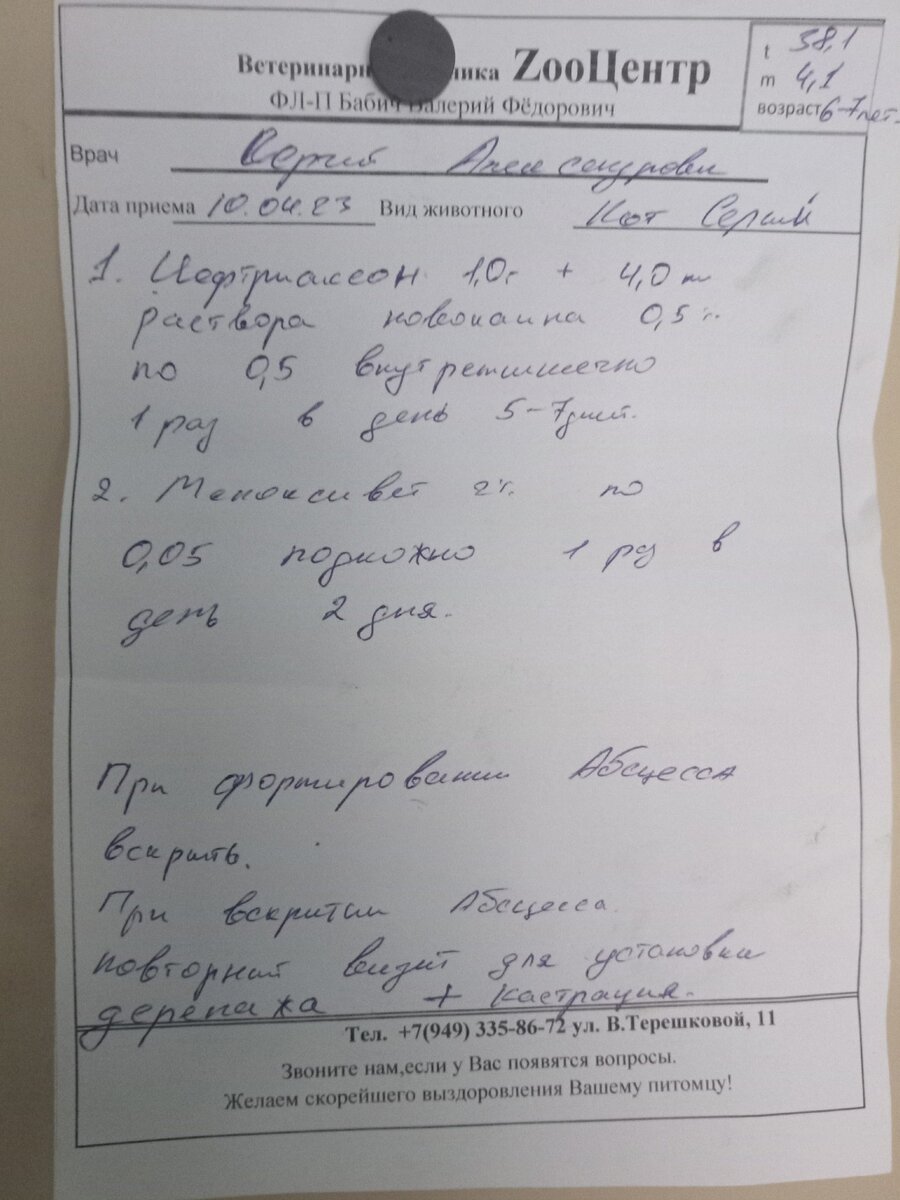 Ветеринарн ника ZooЦентр
ФЛ-П Бабич Валерий Фёдорович
t 38,1
m 4,1
возраст 6-7лет.
Врач Сергей Александрович
Дата приема 10.04.23 Вид животного Кот Серый
1. Цефтриаксон 1,0г + 4,0 мл
раствора новокаина 0,5%
по 0,5 внутремышечно
1 раз в день 5-7дней.
2. Мелоксивет 2% по
0,05 подкожно 1 раз в
день 2 дня.
При формировании Абсцесса
вскрыть.
При вскритии Абсцесса.
повторный визит для установки
деренажа + кастрация.
Тел. +7(949) 335-86-72 ул. В.Терешковой, 11
Звоните нам,если у Вас появятся вопросы.
Желаем скорейшего выздоровления Вашему питомцу!